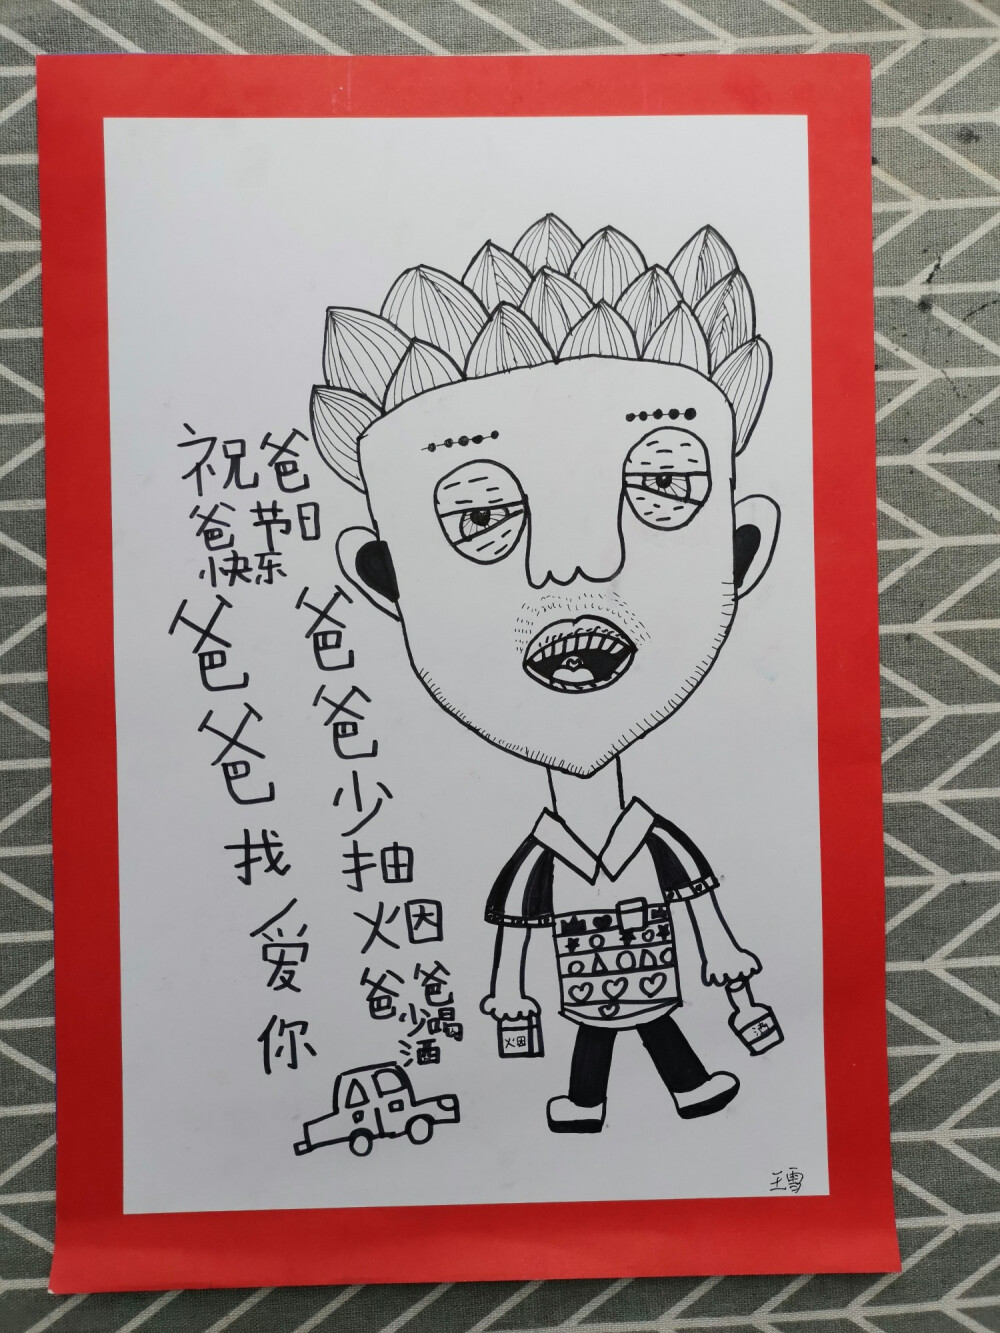 祝爸
爸节日
快乐
爸爸找爱你
爸爸少抽烟
爸爸
少喝
酒
烟
酒
王雪